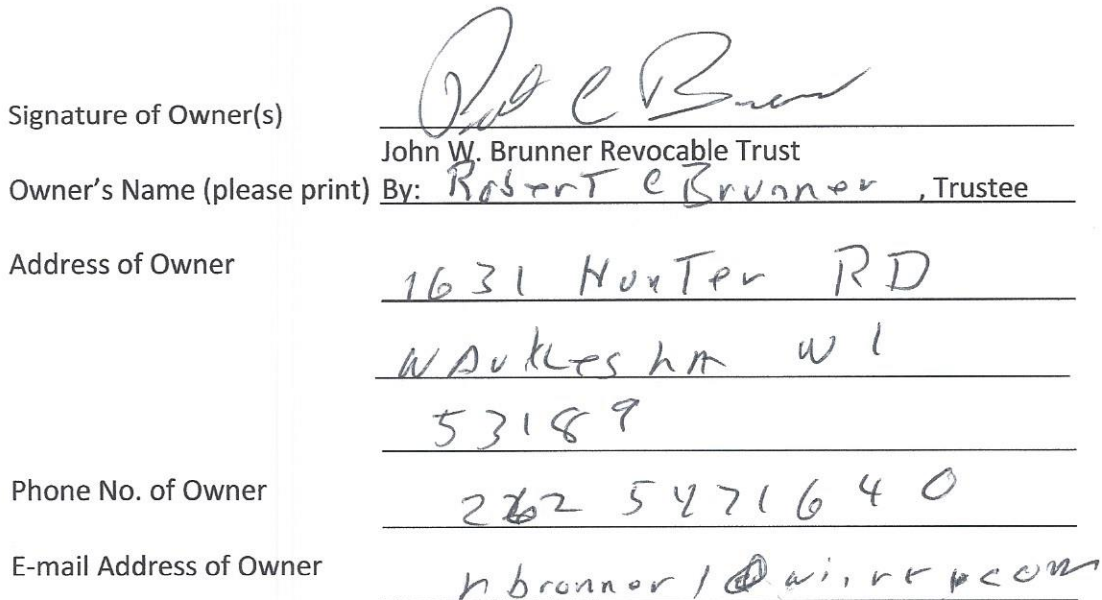 Signature of Owner(s) C Brunner
John W. Brunner Revocable Trust
Owner's Name (please print) By: Robert C Brunner, Trustee
Address of Owner 1631 Hunter RD
WAukesha WI
53189
Phone No. of Owner 262 5471640
E-mail Address of Owner